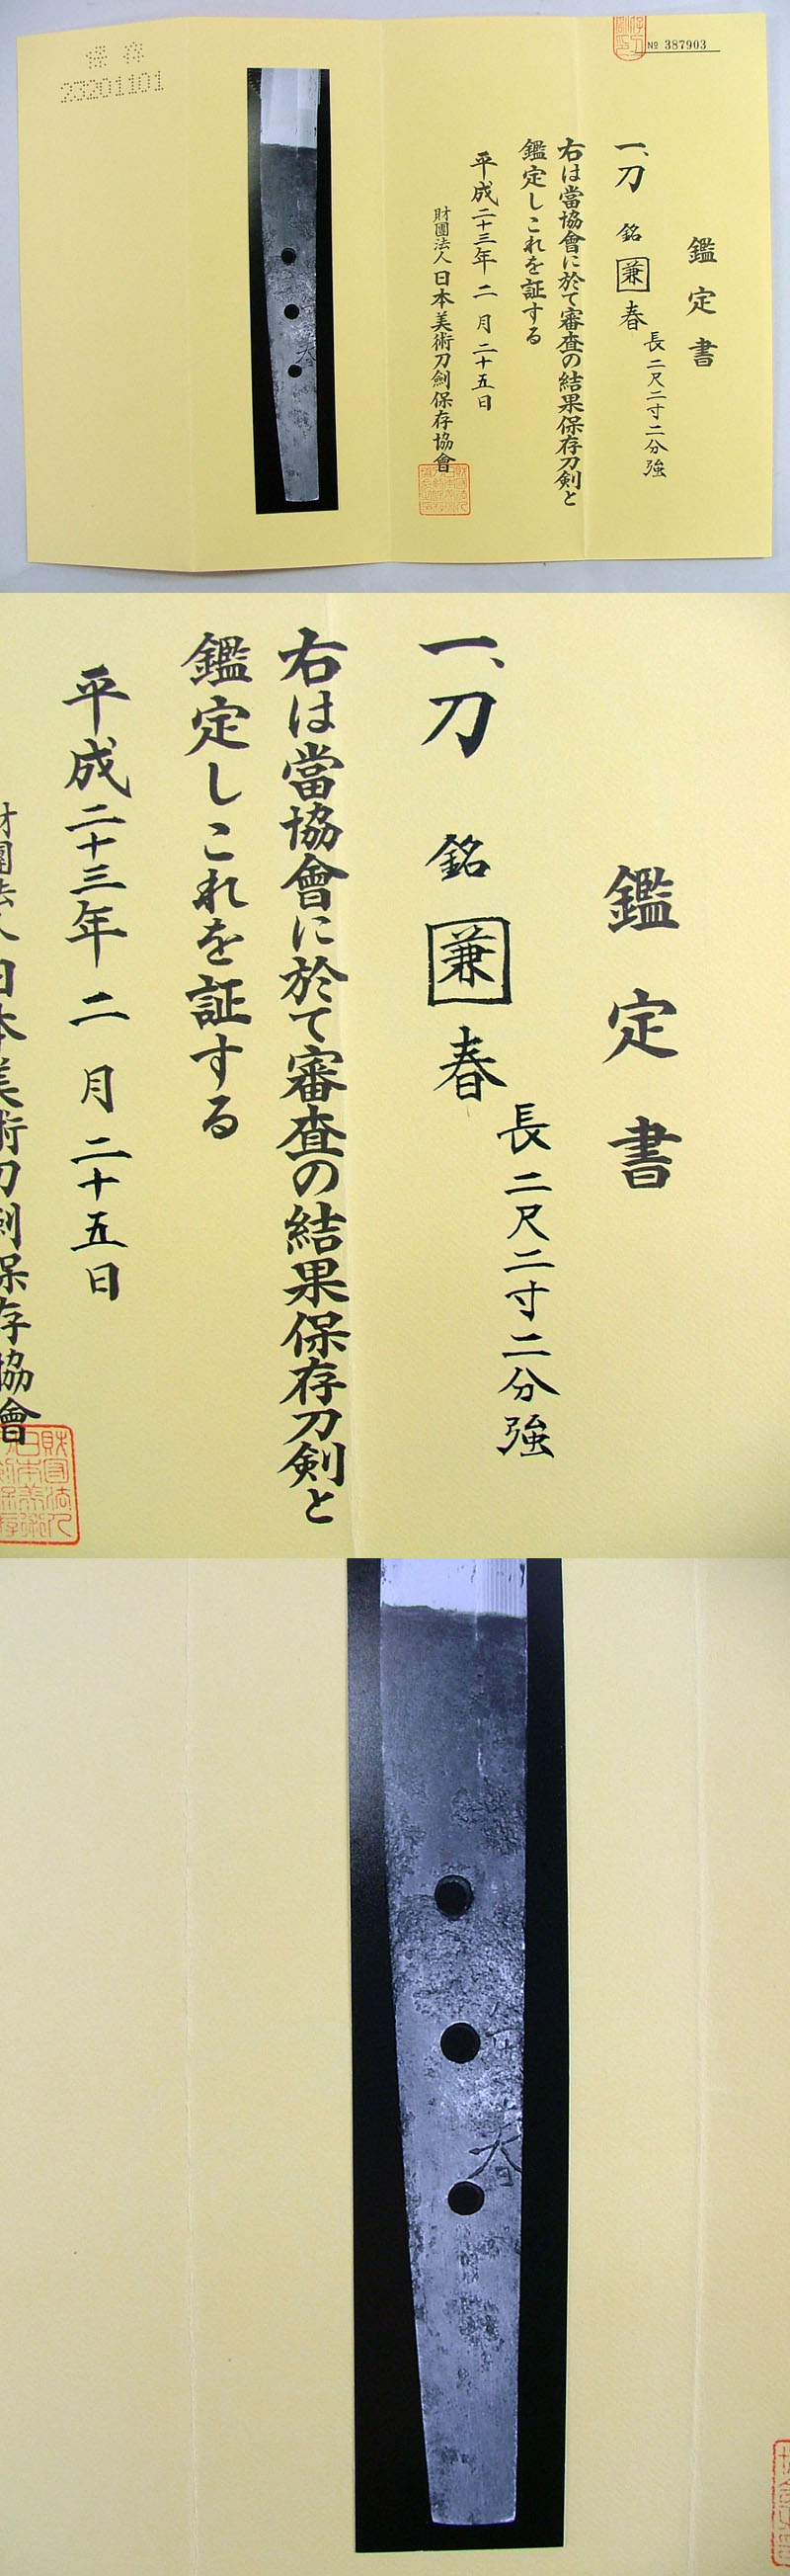 保存
23201101
№ 387903
鑑定書
一、刀 銘 兼春
長二尺二寸二分強
右は當協會に於て審査の結果保存刀剣と
鑑定しこれを証する
平成二十三年二月二十五日
財團法人日本美術刀劍保存協會
鑑定書
一、刀 銘 兼春
長二尺二寸二分強
右は當協會に於て審査の結果保存刀剣と
鑑定しこれを証する
平成二十三年二月二十五日
財團法人日本美術刀劍保存協會
春